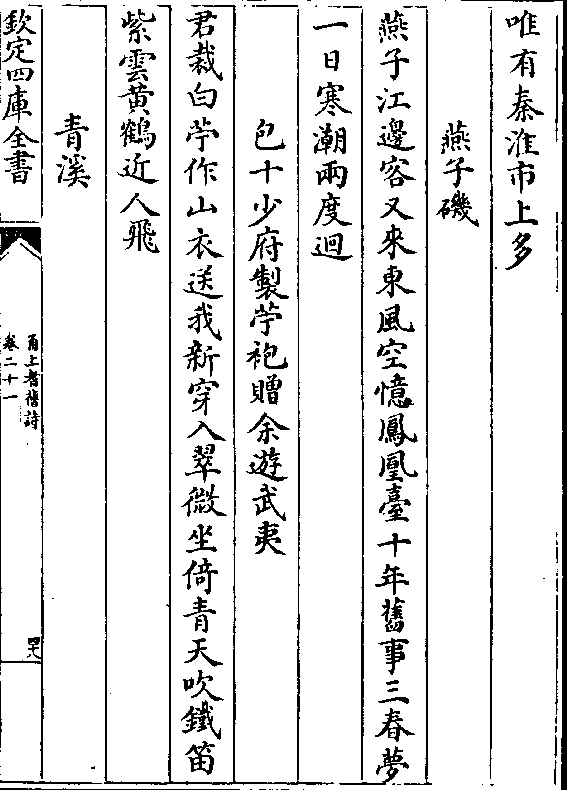 唯有秦淮市上多
燕子磯
燕子江邊客又來東風空憶鳳凰臺十年舊事三春夢
一日寒潮兩度迴
包十少府製苧袍贈余遊武夷
君裁白苧作山衣送我新穿入翠微坐倚青天吹鐵笛
紫雲黃鶴近人飛
青溪
欽定四庫全書
甬上耆舊詩
卷二十一
四十八